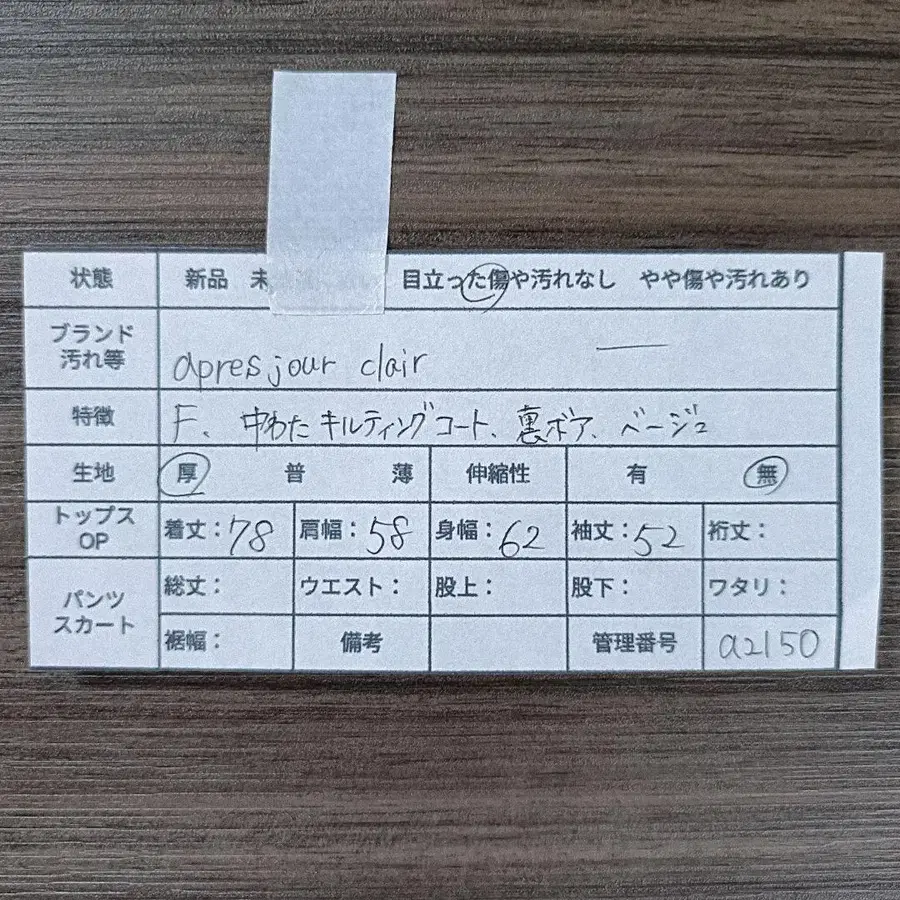 状態 新品 未 目立った傷や汚れなし やや傷や汚れあり
ブランド
汚れ等 apres jour clair —
特徴 F、中わたキルティングコート、裏ボア、ベージュ
生地 厚 普 薄 伸縮性 有 無
トップス
OP 着丈：78 肩幅：58 身幅：62 袖丈：52 裄丈：
パンツ
スカート 総丈： ウエスト： 股上： 股下： ワタリ：
裾幅： 備考 管理番号 a2150